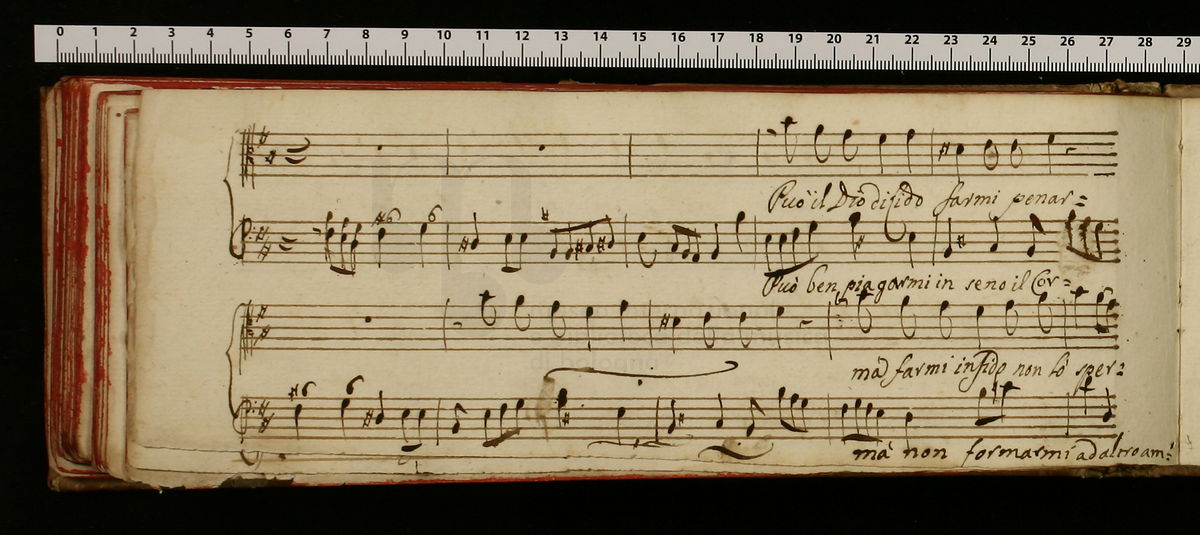 0 1 2 3 4 5 6 7 8 9 10 11 12 13 14 15 16 17 18 19 20 21 22 23 24 25 26 27 28 29
Può il Dio di fido farmi penar=
Può ben piagarmi in seno il Cor=
mà farmi infido non lò sper=
mà non formarmi ad altro am=